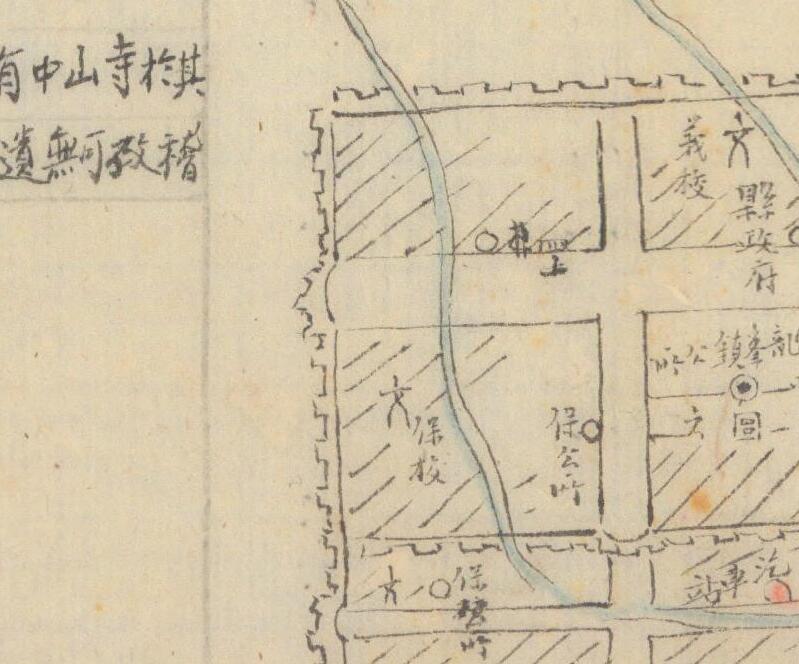 其於寺山中有
稽考可無遺
義校
文
縣政府
龍峯鎮公所
圖
文
文
保校
保公所
汽車站
文
保公所